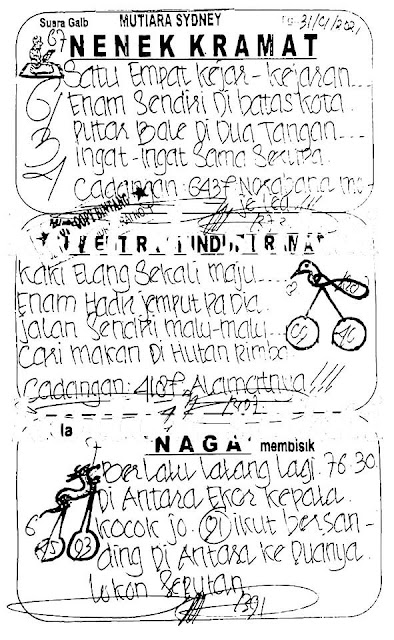 Suara Gaib MUTIARA SYDNEY 31/01/2021
67 NENEK KRAMAT
Satu Empat kejar-kejaran....
Enam Sendiri Di batas kota.
Putar Bale Di Dua Tangan....
Ingat-Ingat Sama Serupa.
Cadangan: 643f
Kaki Elang Sekali maju....
Enam Hadir jemput Pa Dia.
Jalan Sendiri malu-malu...
Cari makan Di Hutan Rimba
Cadangan: 418f. Alamattnya !!!
la
NAGA membisik
Berlalu lalang lagi. 76-30.
Di Antara Ekor kepala.
kocok jo. 91 ikut bersan-
ding Di Antara ke Duanya.